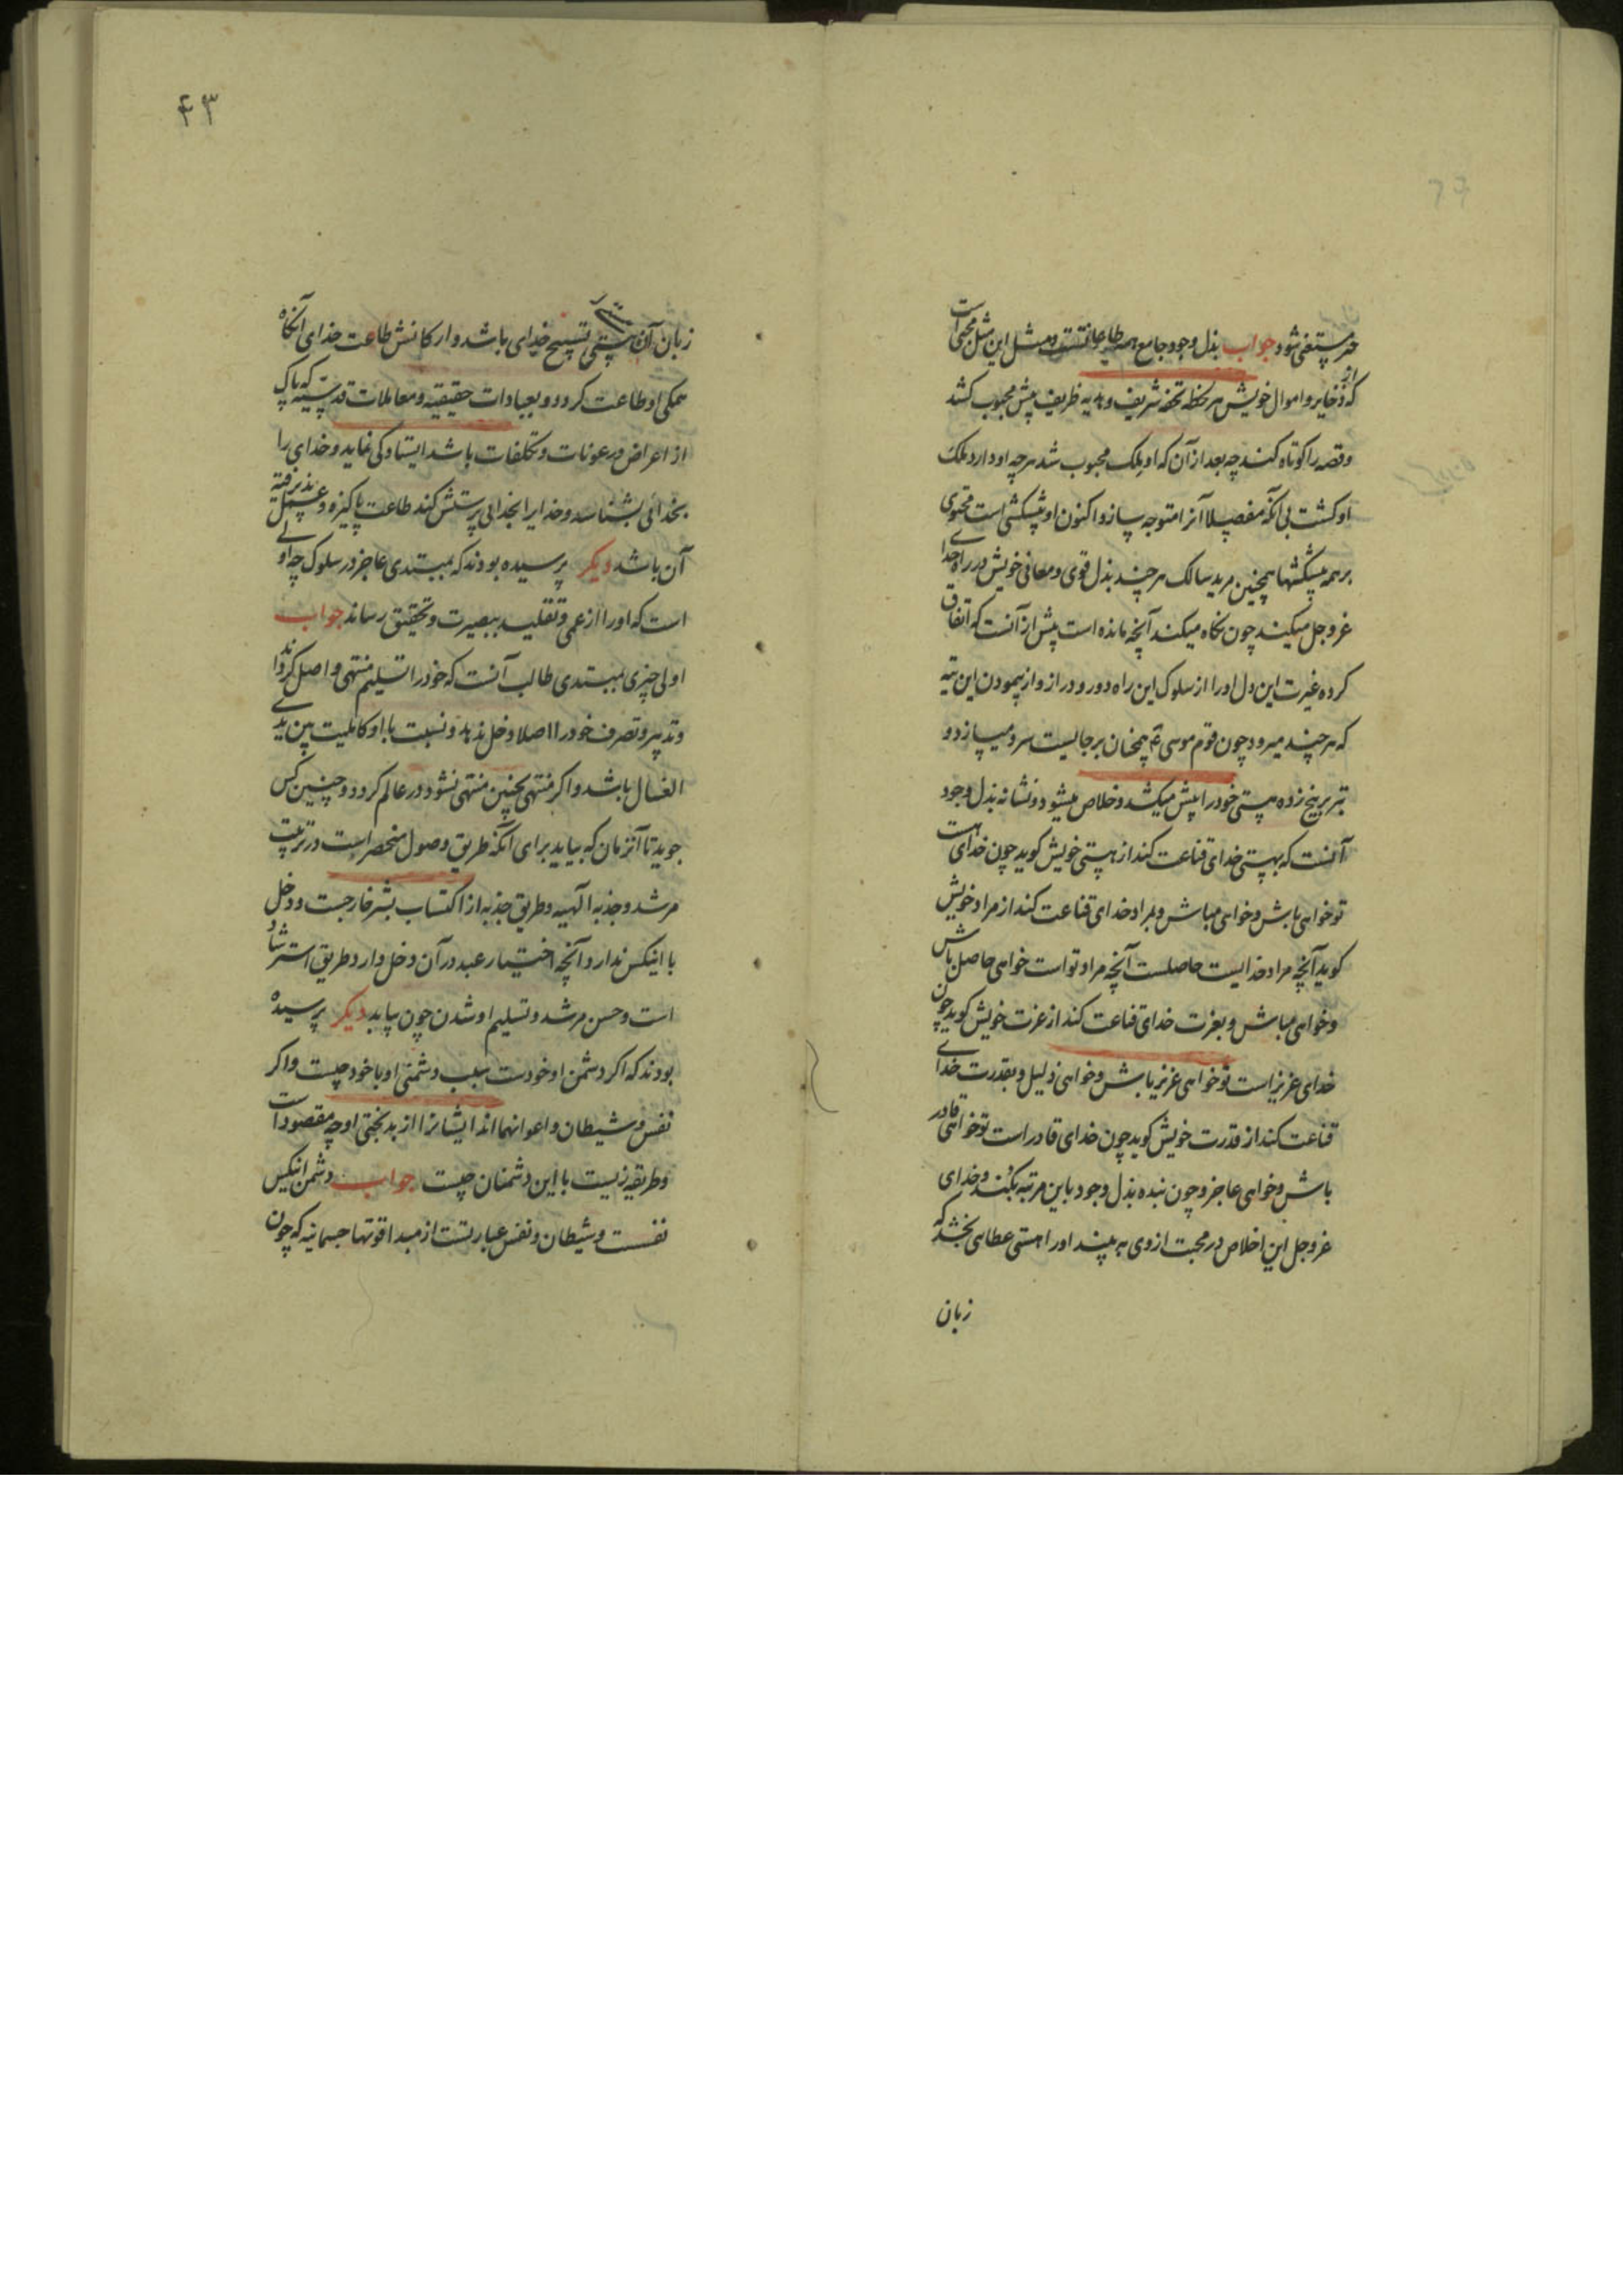 مستغنی شود جواب بذل وجود جامع همه طاعاتست و مثل این مثل محبی است
که از ذخایر و اموال خویش هر لحظه تحفه شریف و هدیه ظریف پیش محبوب کشد
و قصه را کوتاه کند چه بعد از آن که او ملک محبوب شد هرچه او دارد ملک
او کشت بی آنکه مفصلا آنرا متوجه سازد و اکنون او پیشکشی است محتوی
بر همه پیشکشها همچنین مرید سالک هر چند بذل قوی و معانی خویش در راه خدای
عز و جل میکند چون نکاه میکند آنچه مانده است پیش از آنست که اتفاق
کرده غیرت این دل او را از سلوک این راه دور و دراز و از پیمودن این تیه
که هر چند میرود چون قوم موسی ع همچنان بر جالیست سرد میسازد و
تبر بر بیخ زده هستی خود را پیش میکشد و خلاص میشود و نشانه بذل وجود
آنست که بهستی خدای قناعت کند از هستی خویش کوید چون خدای هست
تو خواهی باش و خواهی مباش و بمراد خدای قناعت کند از مراد خویش
کوید آنچه مراد خدایست حاصلست آنچه مراد تو است خواهی حاصل باش
و خواهی مباش و بعزت خدای قناعت کند از عزت خویش کوید چون
خدای عزیز است تو خواهی عزیز باش و خواهی ذلیل و بقدرت خدای
قناعت کند از قدرت خویش کوید چون خدای قادر است تو خواهی قادر
باش و خواهی عاجز و چون بنده بذل وجود باین مرتبه بکند و خدای
عز و جل این اخلاص در محبت از وی به بیند او را هستی عطایی بخشد که
زبان
۴۳
زبان آن هستی تسبیح خدای باشد و ارکانش طاعت خدای آنکاه
همکی او طاعت کردد و بعبادات حقیقیه و معاملات قدسیه که پاک
از اعراض و رعونات و تکلفات باشد ایستادکی نماید و خدای را
بخدائی بشناسد و خدایرا بخدائی پرستش کند طاعت پاکیزه و عمل پذیرفته
آن باشد دیکر پرسیده بودند که مبتدی عاجز در سلوک چه اولی
است که او را از عمی و تقلید ببصیرت و تحقیق رساند جواب
اولی چیزی مبتدی طالب آنست که خود را تسلیم منتهی واصل کرداند
و تدبیر و تصرف خود را اصلا دخل ندهد و نسبت با او کالمیت بین یدی
الغسال باشد و اکر منتهی همچنین منتهی نشود در عالم کردد و چنین کس
جوید تا آنزمان که بیابد برای آنکه طریق وصول منحصر است در تربیت
مرشد و جذبه الهیه و طریق جذبه از اکتساب بشر خارجست و دخل
با اینکس ندارد و آنچه اختیار عبد در آن دخل دارد طریق استرشاد
است و حسن مرشد و تسلیم او شدن چون بیابد دیکر پرسیده
بودند که اکر دشمن او خودست سبب دشمنی او با خود چیست و اکر
نفس و شیطان و اعوانهما اند ایشانرا از بدبختی او چه مقصود است
و طریقه زیست با این دشمنان چیست جواب دشمن اینکس
نفست و شیطان و نفس عبارتست از مبدا قوتها جسمانیه که چون